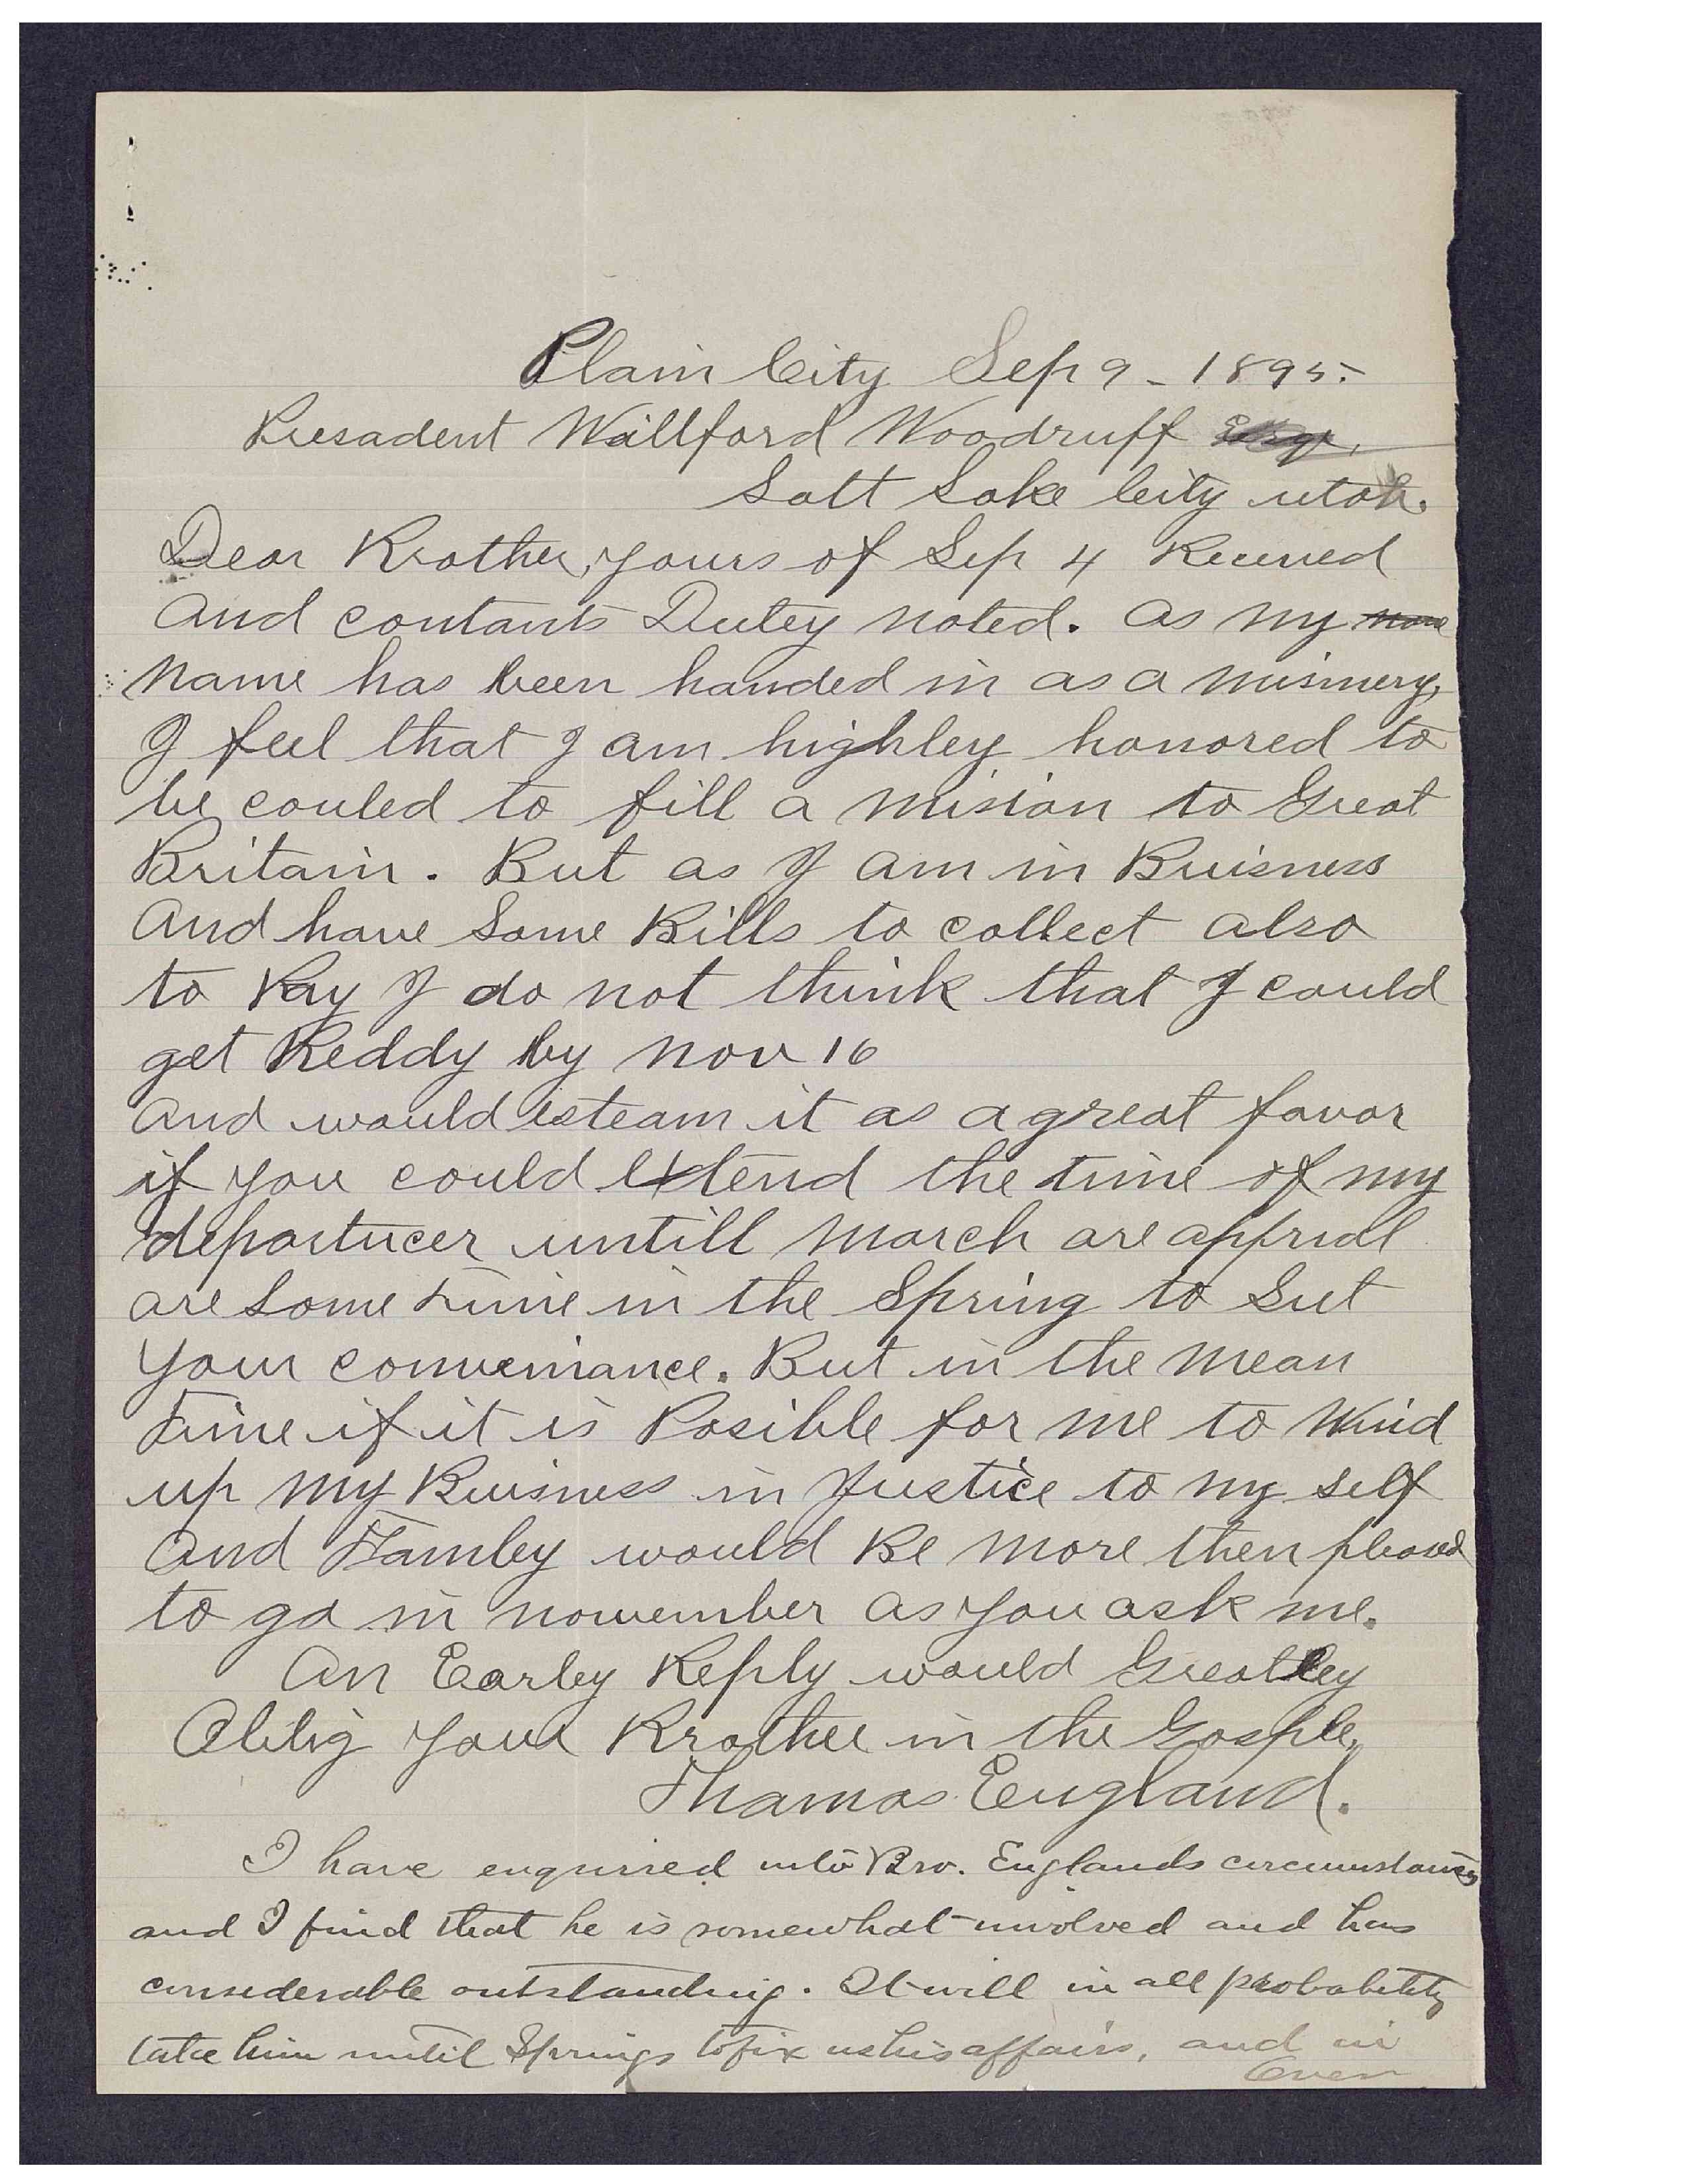 Plain City Sep 9 - 1895.
Presadent Willford Woodruff Esqr,
Salt Lake City utah.
Dear Brother, yours of Sep 4 Received
and contants Duley noted. as my name
name has been handed in as a misinery,
I feel that I am highley honored to
be couled to fill a mision to Great
Britain. But as I am in Buisness
and have some Bills to collect also
to Pay I do not think that I could
get Reddy by nov 16
and would esteam it as a great favor
if you could extend the time of my
departucer untill march are appral
are some time in the Spring to Sut
your conveniance. But in the mean
time if it is Posible for me to Wind
up my Buisness in Justice to my self
and Famley would Be more then pleased
to go in november as you ask me.
An Earley Reply would Greatley
Oblig your Brother in the Gosple,
Thomas England.
I have enquired into Bro. Englands circumstances
and I find that he is somewhat involved and has
considerable outstanding. It will in all probability
take him until Springs to fix us his affairs, and in
Over